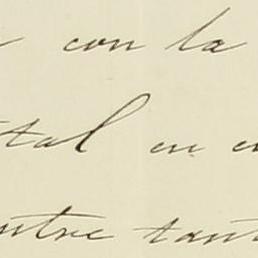 con la
tal en
ntre tant